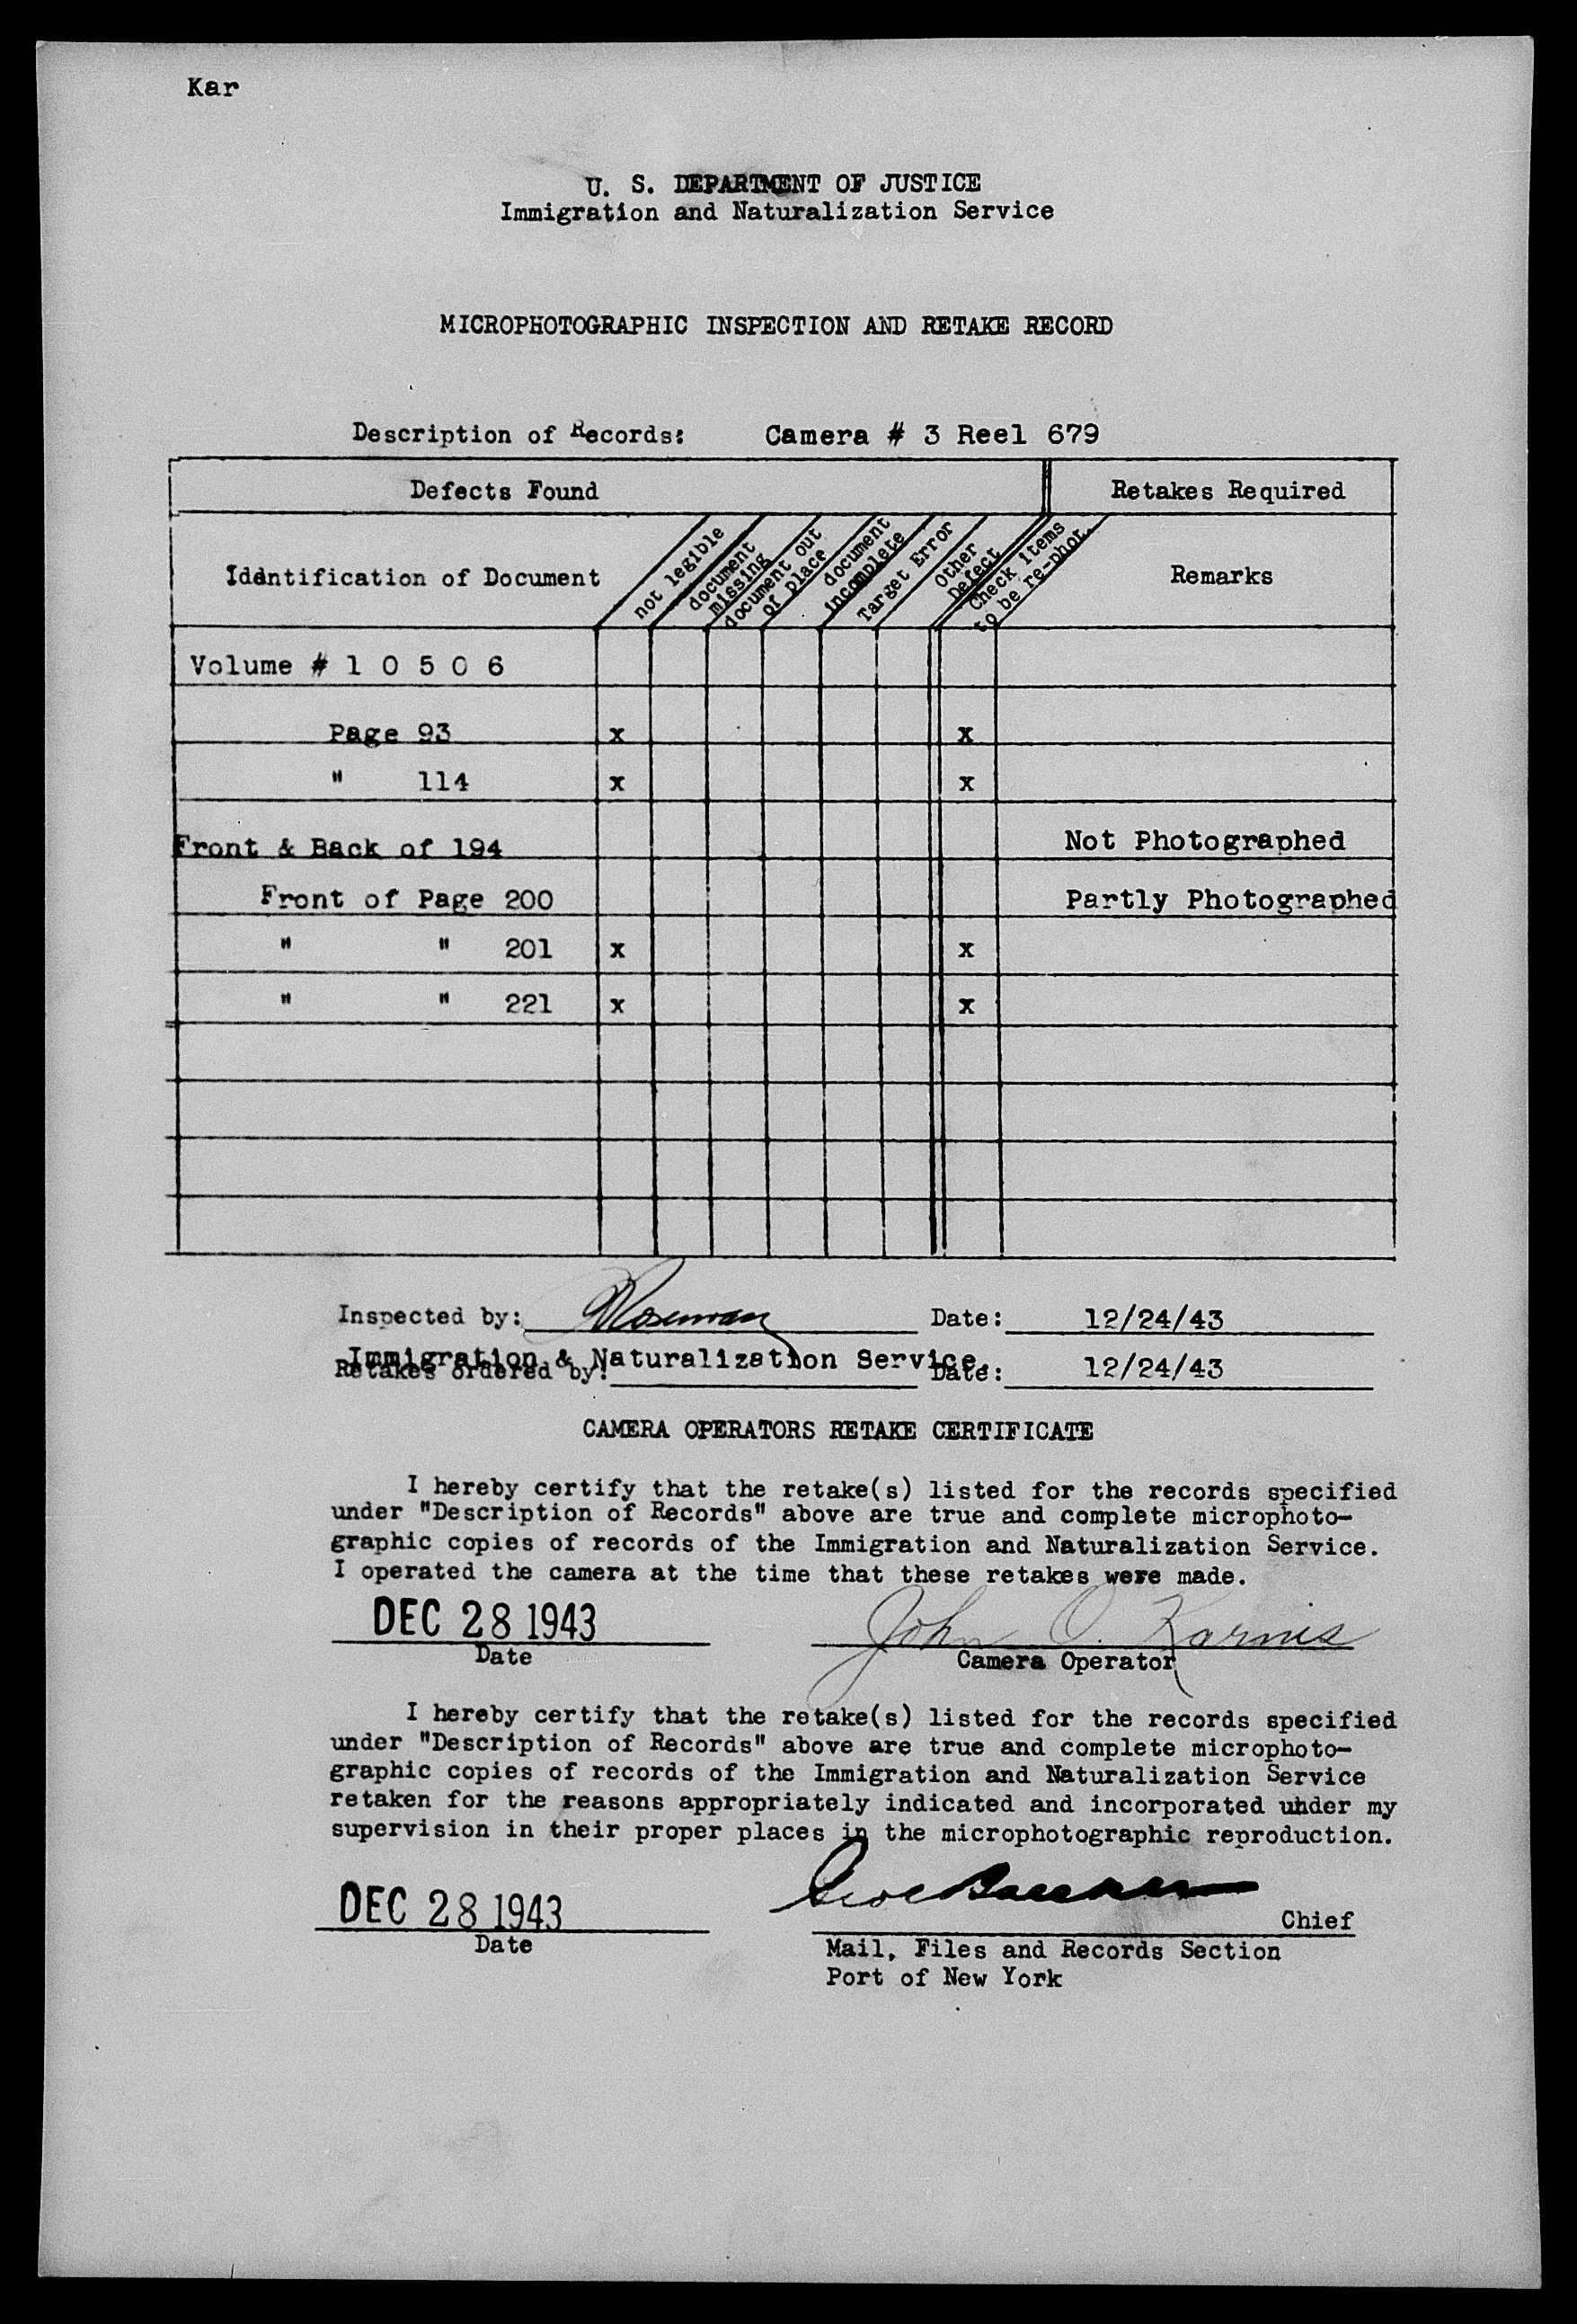 Kar
U. S. DEPARTMENT OF JUSTICE
Immigration and Naturalization Service
MICROPHOTOGRAPHIC INSPECTION AND RETAKE RECORD
Description of Records: Camera # 3 Reel 679
Defects Found Retakes Required
Iddntification of Document not legible document missing document out of place document incomplete Target Error Other Defect Check items to be re-phot. Remarks
Volume # 1 0 5 0 6
Page 93 x x
" 114 x x
Front & Back of 194 Not Photographed
Front of Page 200 Partly Photographed
" " 201 x x
" " 221 x x
Inspected by: Date: 12/24/43
Immigration & Naturalization Service.
Retakes ordered by: Date: 12/24/43
CAMERA OPERATORS RETAKE CERTIFICATE
I hereby certify that the retake(s) listed for the records specified
under "Description of Records" above are true and complete microphoto-
graphic copies of records of the Immigration and Naturalization Service.
I operated the camera at the time that these retakes were made.
DEC 28 1943 John O. Karnis
Date Camera Operator
I hereby certify that the retake(s) listed for the records specified
under "Description of Records" above are true and complete microphoto-
graphic copies of records of the Immigration and Naturalization Service
retaken for the reasons appropriately indicated and incorporated under my
supervision in their proper places in the microphotographic reproduction.
DEC 28 1943 Chief
Date Mail, Files and Records Section
Port of New York